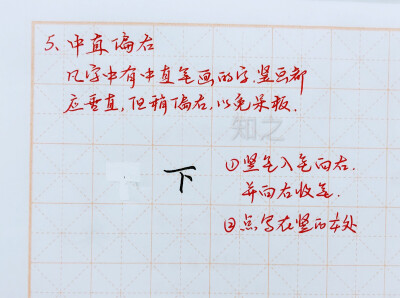 5、中直偏右
凡字中有中直笔画的字,竖画都
应垂直,但稍偏右,以免呆板.
知之
下
①竖笔入笔向右.
并向右收笔.
②点写在竖的本处